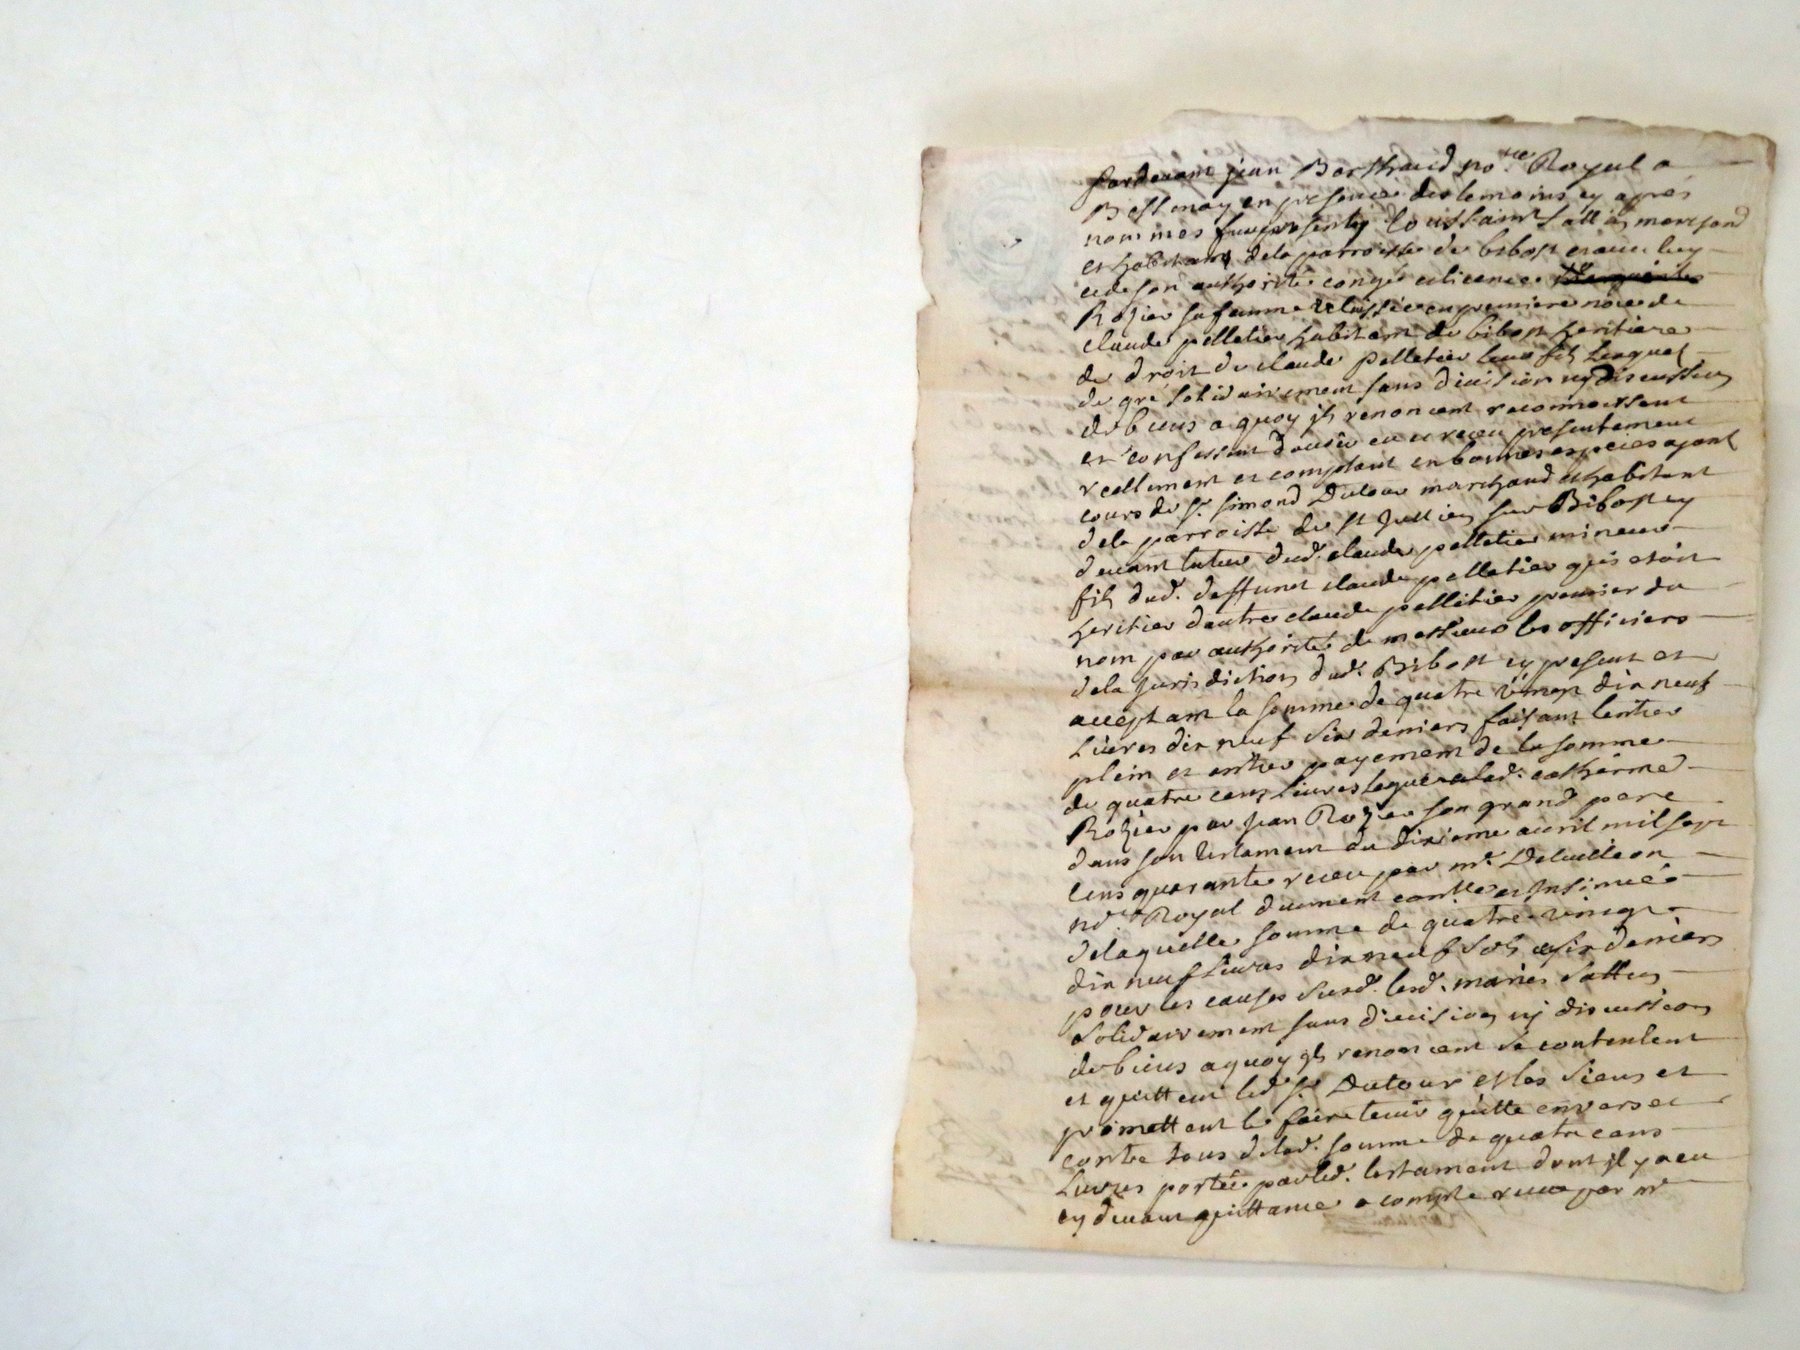 pardevant jean Berthaud no.re Royal a
Bessenay en presence des temoins cy aprés
nommés fut presents toussaint sattin marchand
et habitant de la parroisse de bibost et avec luy
et de son authorité congé et licence
Rozier sa femme relaissée en premiere noce de
claude pelletier habitant de bibost heritiere
de droit de claude pelletier leur fils lesquels
de gré solidairement sans division ny discussion
de biens a quoy ils renoncent reconnoissent
et confessent d'avoir eu et receu presentement
reellement et comptant en bonnes especes ayant
cours de sr. simond Dutour marchand et habitant
de la parroisse de st Jullien sur Bibost cy
devant tuteur dud. claude pelletier mineur
fils dud. deffunct claude pelletier qui etoit
heritier d'autre claude pelletier premier du
nom par authorité de messieurs les officiers
de la Jurisdiction dud. Bibost cy present et
acceptant la somme de quatre vingt dix neuf
Livres dix neuf six deniers faisant lentier
plein et entier payement de la somme
de quatre cens Livres leguée a lad. catherine
Rozier par jean Rozier son grand pere
dans son testament du dixieme avril mil sept
cens quarante receu par me. Delacleon
no.re Royal duement con.llé et Insinué
de laquelle somme de quatre vingt
dix neuf Livres dix neuf sols et six deniers
pour les causes susd. lesd. mariés sattin
solidairement sans division ny discussion
de biens a quoy ils renoncent se contentent
et quittent led. sr. Dutour et les siens et
promettent le faire tenir quitte envers et
contre tous de lad. somme de quatre cens
Livres portée par led. testament dont il y a eu
cy devant quittance a compte receu par me